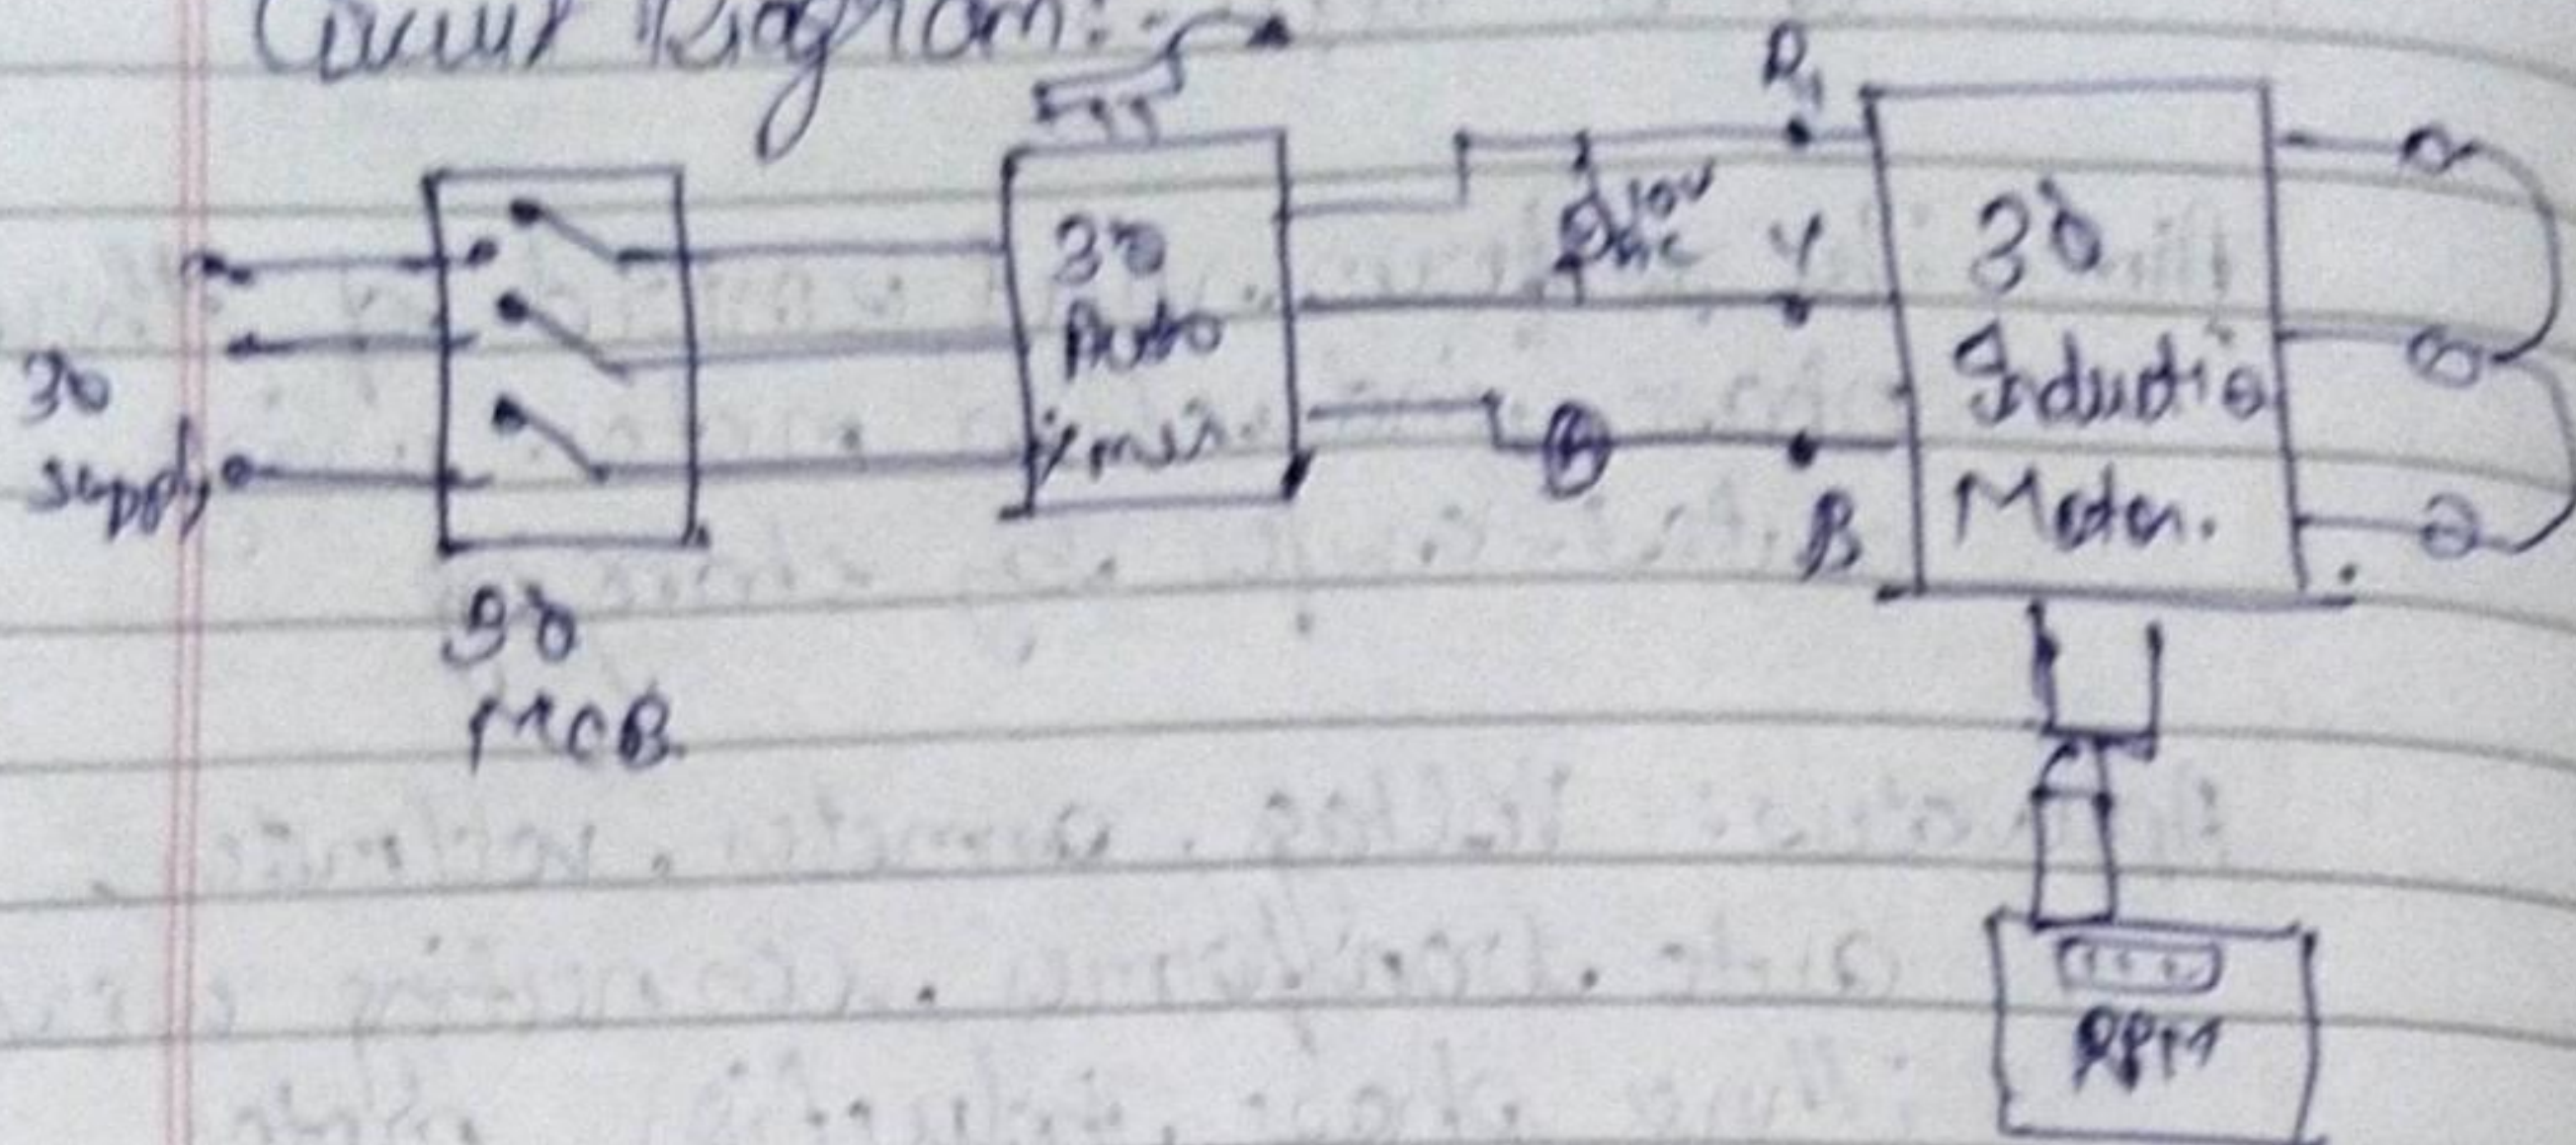 Circuit Diagram:-
3Ø
supply
3Ø
MCB.
3Ø
Auto
R
Y
B
3Ø
Inductio
Motor.
RPM